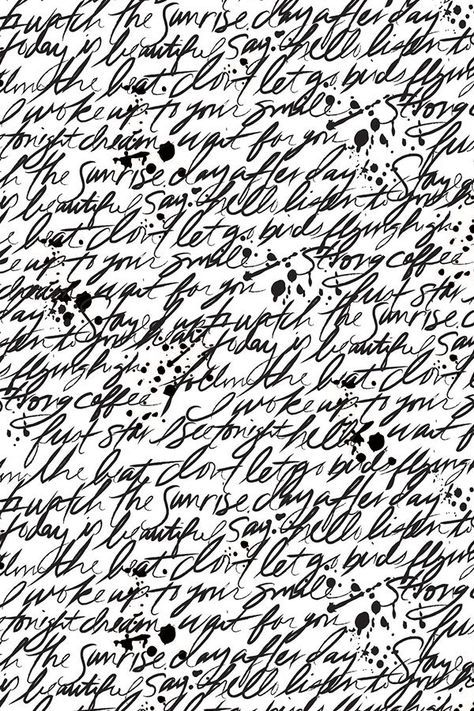 watch the Sunrise day after day
today is beautiful Say. hello listen to
the beat. don't let go birds flying
I woke up to your smile Strong
tonight dream wait for you
the Sunrise day after day. Stay
is beautiful Say. hello listen to
the beat. don't let go birds flying high
up to your smile Strong coffee
dream wait for you first star I see
day. Stay up watch the Sunrise
listen to today is beautiful Say
flying high the beat. don't
Strong coffee I woke up to your
first star I see tonight wait
the beat don't let go birds flying
watch the Sunrise day after day
today is beautiful Say. hello listen to
the beat. don't let go birds flying
I woke up to your smile Strong
tonight dream wait for you
the Sunrise day after day. Stay
is beautiful Say. hello listen to
the beat. don't let go birds flying high